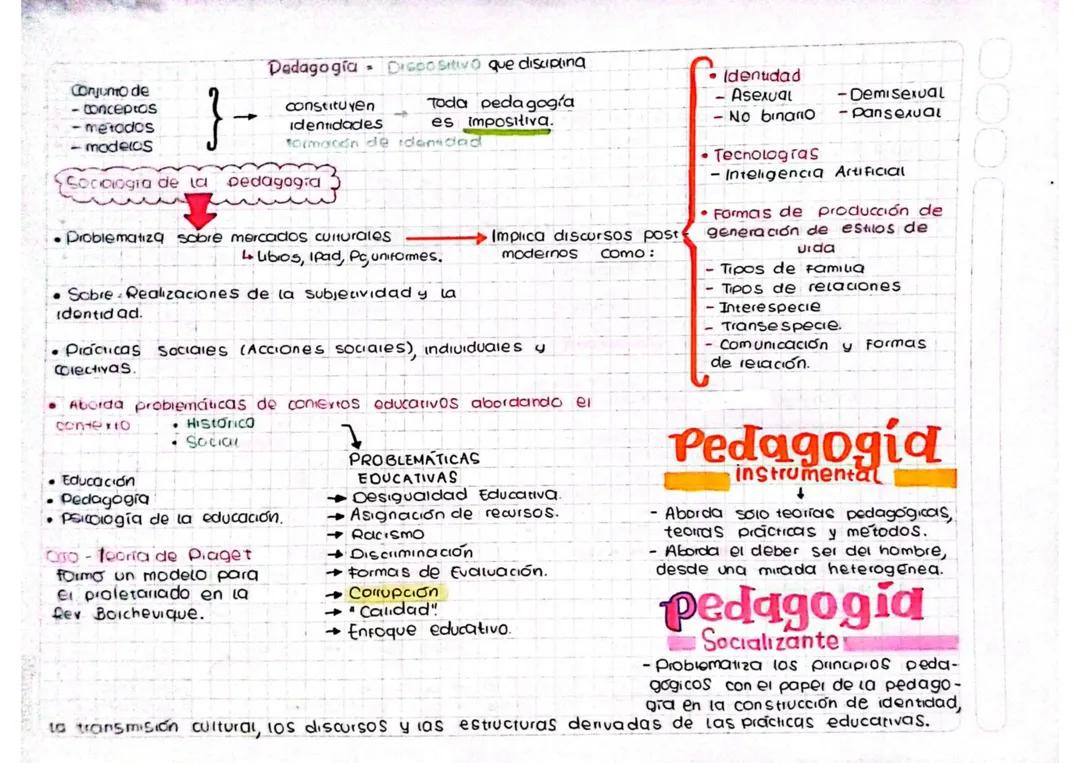 Pedagogía = Dispositivo que disciplina
Conjunto de
- conceptos
- métodos
- modelos
constituyen
identidades
formación de identidad
Toda pedagogía
es impositiva.
Sociología de la pedagogía
• Problematiza sobre mercados culturales
↳ Libros, IPad, Pc, uniformes.
Implica discursos post
modernos como:
• Identidad
- Asexual - Demisexual
- No binario - Pansexual
• Tecnologías
- Inteligencia Artificial
• Formas de producción de
generación de estilos de
vida
- Tipos de familia
- Tipos de relaciones
- Interespecie
- Transespecie.
- Comunicación y formas
de relación.
• Sobre. Realizaciones de la subjetividad y la
identidad.
• Prácticas sociales (Acciones sociales), individuales y
colectivas.
• Aborda problemáticas de contextos educativos abordando el
contexto
• Histórico
• Social
• Educación
• Pedagogía
• Psicología de la educación.
- Teoría de Piaget
formo un modelo para
el proletariado en la
Rev. Bolchevique.
PROBLEMÁTICAS
EDUCATIVAS
→ Desigualdad Educativa.
→ Asignación de recursos.
→ Racismo
→ Discriminación
→ Formas de Evaluación.
→ Corrupción
→ "Calidad".
→ Enfoque educativo.
Pedagogía
instrumental
- Aborda solo teorías pedagógicas,
teorías prácticas y métodos.
- Aborda el deber ser del hombre,
desde una mirada heterogénea.
pedagogía
Socializante
- Problematiza los principios peda-
gógicos con el papel de la pedago-
gía en la construcción de identidad,
la transmisión cultural, los discursos y las estructuras derivadas de las prácticas educativas.